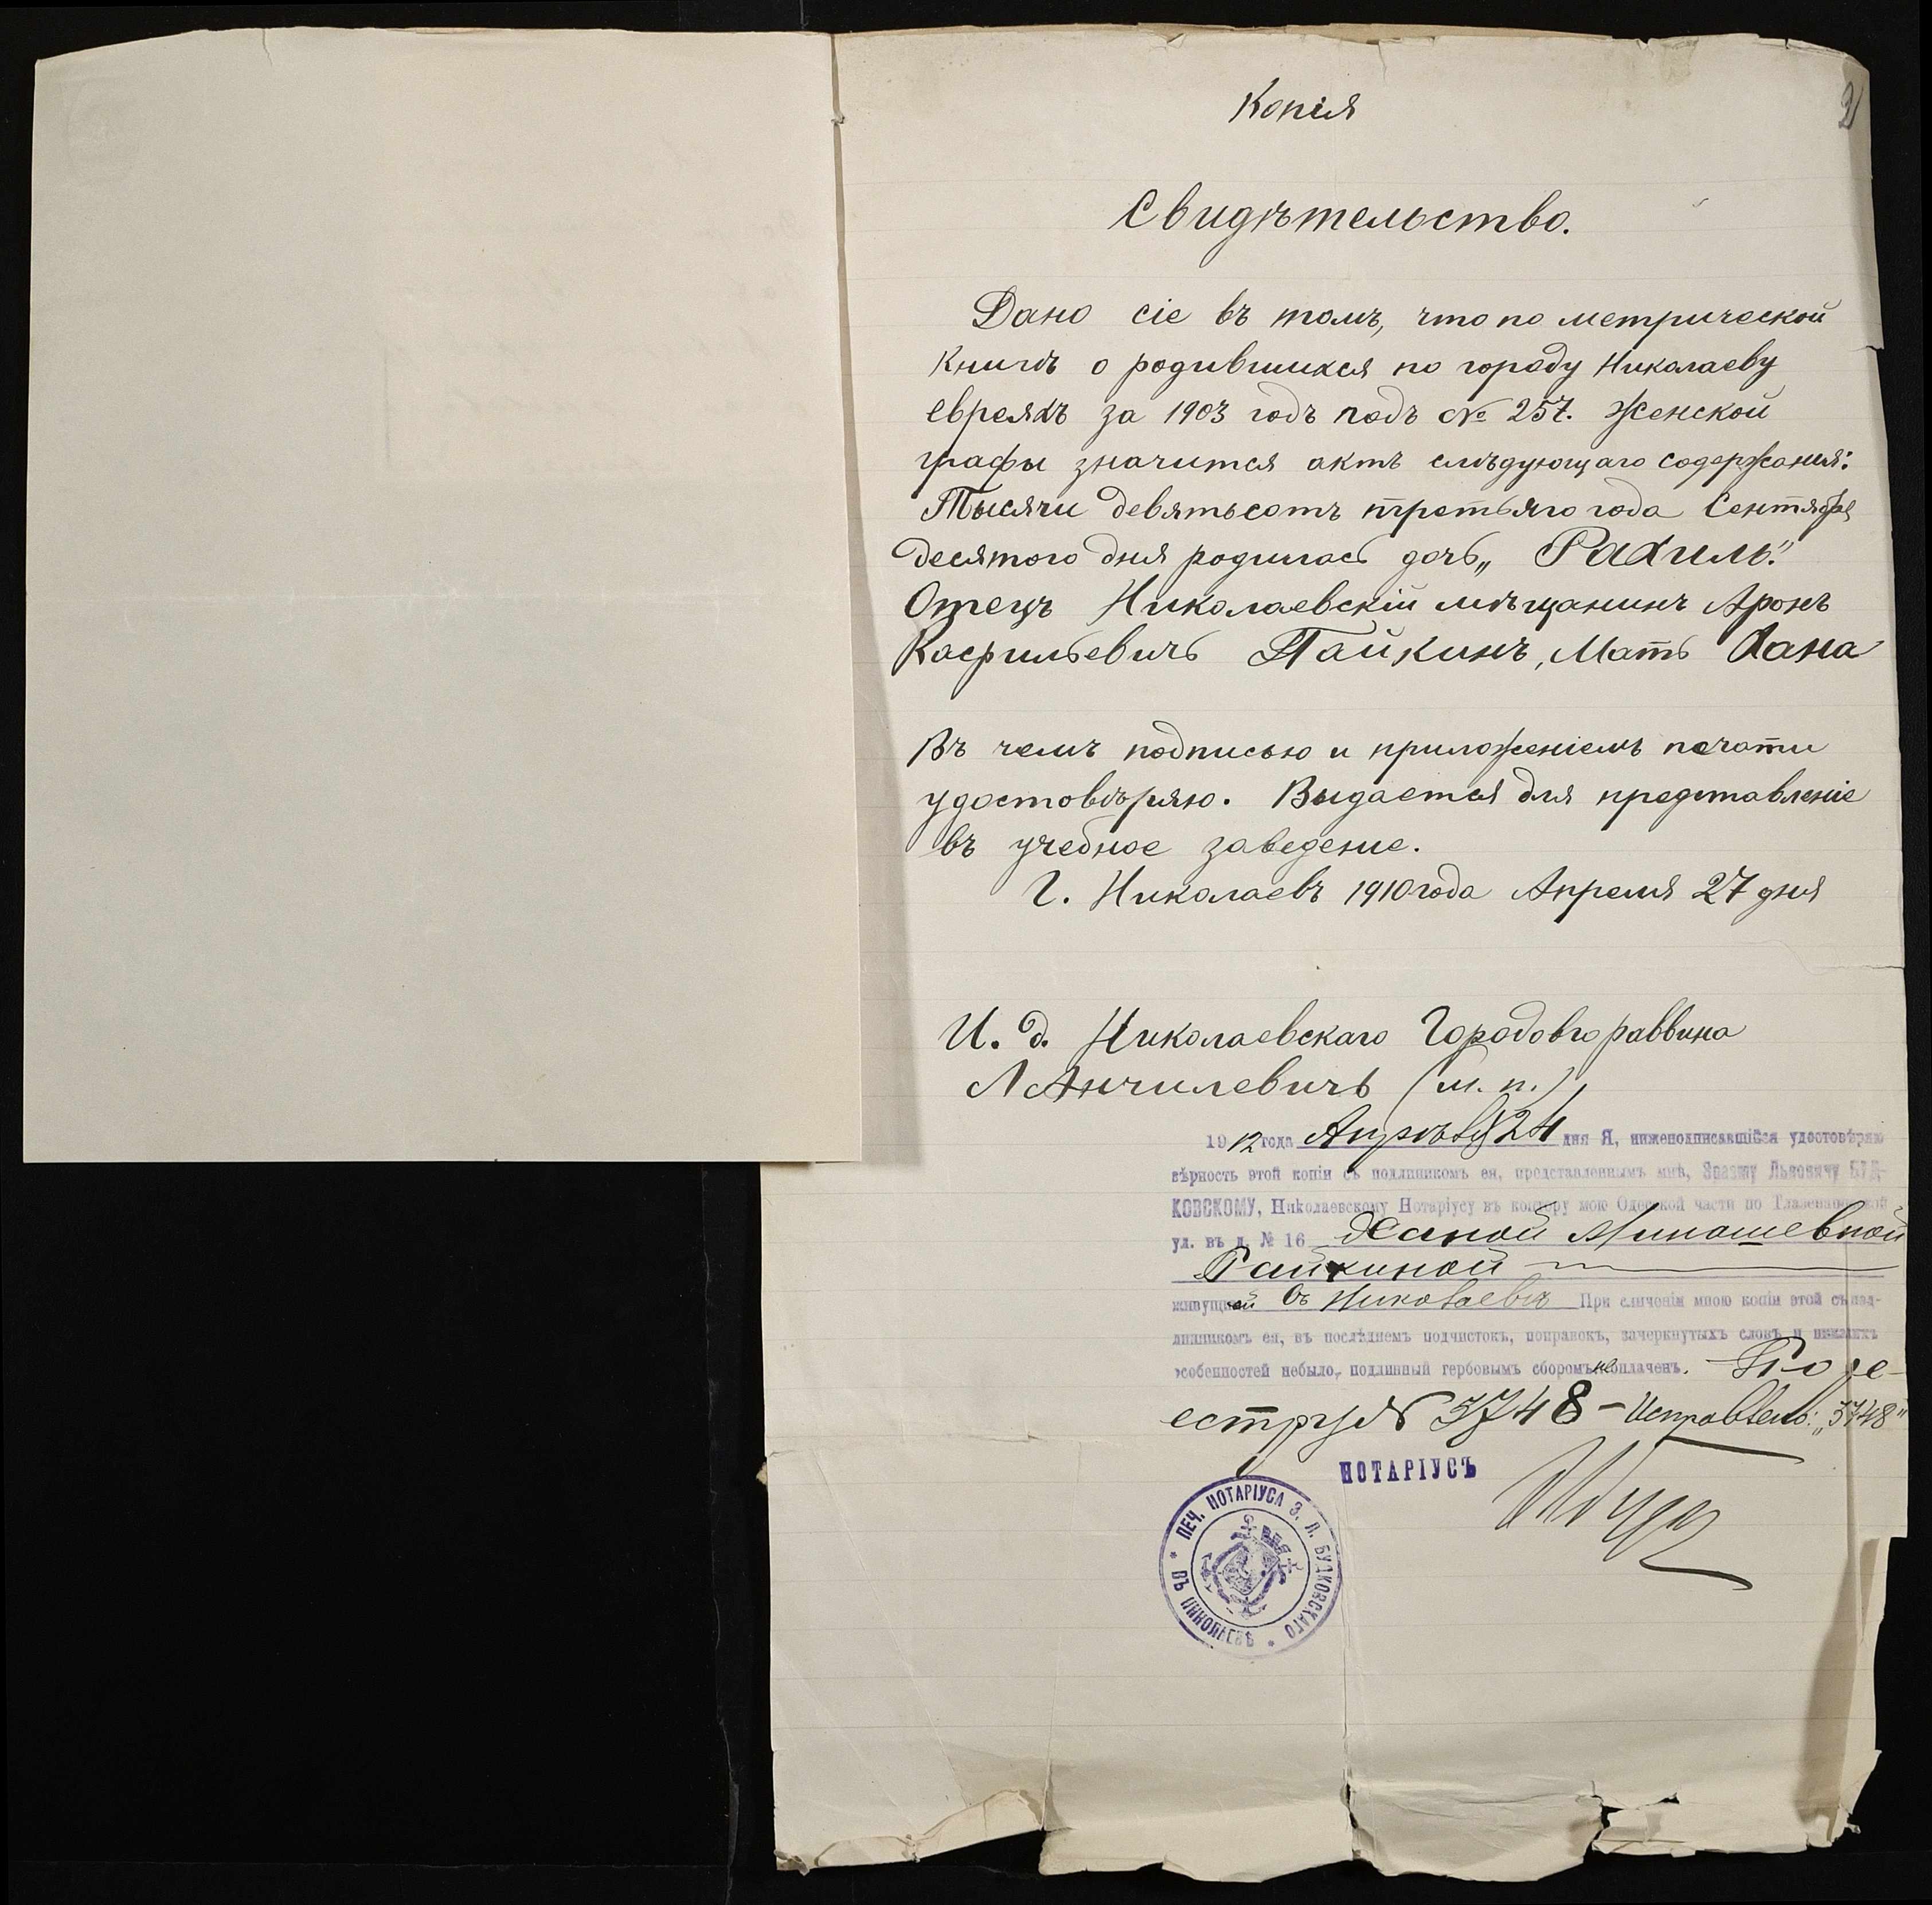 2
Копія
Свидѣтельство.
Дано сіе въ томъ, что по метрической
книгѣ о родившихся по городу Николаеву
евреяхъ за 1903 годъ подъ № 257. женской
графы значится актъ слѣдующаго содержанія:
Тысячи девятьсотъ третьяго года Сентября
десятого дня родилась дочь „Рахиль".
Отецъ Николаевскій мѣщанинъ Аронъ
Касрильевичъ Пайкинъ, Мать Хана
Въ чемъ подписью и приложеніемъ печати
удостовѣряю. Выдается для представленіе
въ учебное заведение.
Г. Николаевъ 1910 года Апреля 27 дня
И. д. Николаевскаго Городовго раввина
Л Анчилевичъ (м. п.),
1912 года Апрѣля 24 дня Я, нижеподписавшійся удостовѣряю
вѣрность этой копіи съ подлинникомъ ея, представленнымъ мнѣ, Львовичу БУД-
КОВСКОМУ, Николаевскому Нотаріусу въ контору мою Одесской части по
ул. въ д. № 16 Ханой Миношевной
Пайкиной
живущей въ Николаевѣ При сличеніи мною копіи этой съ под-
линникомъ ея, въ послѣднемъ подчистокъ, поправокъ, зачеркнутыхъ словъ и никакихъ
особенностей небыло, подлинный гербовымъ сборомъ не оплаченъ. По ре-
естру № 3748 – Исправлено: „3748"
НОТАРІУСЪ
ПЕЧ. НОТАРІУСА З. Л. БУДКОВСКАГО * ВЪ НИКОЛАЕВѢ *